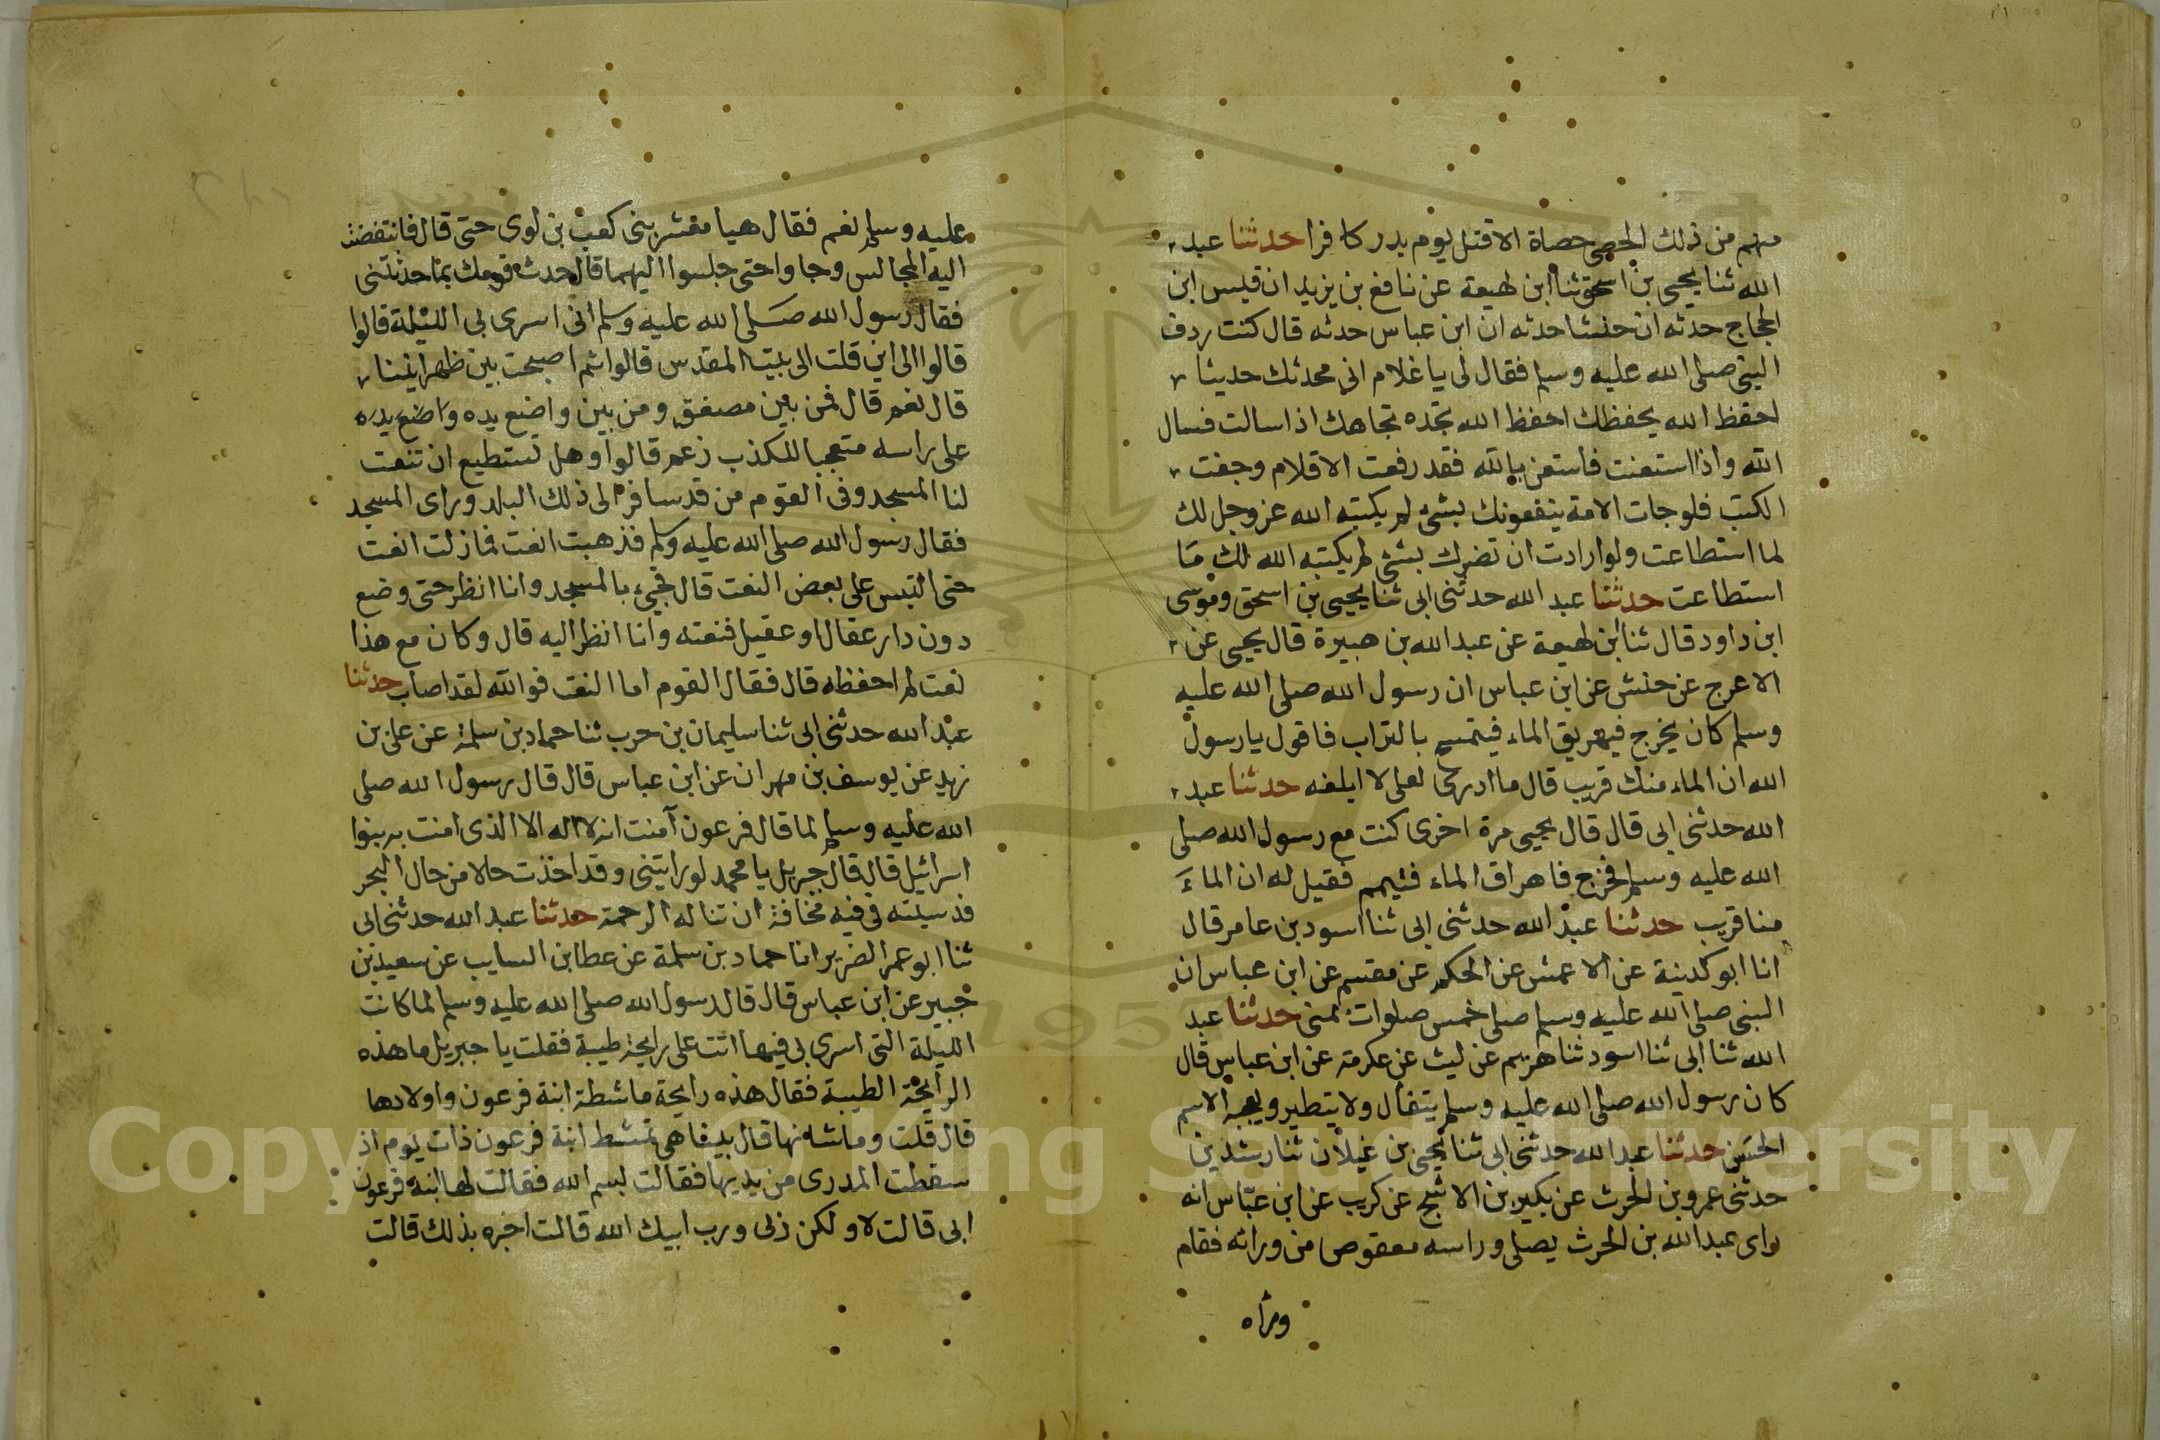 منهم من ذلك الحصى حصاة الا قتل يوم بدر كافرا حدثنا عبد
الله ثنا يحيى بن اسحق ثنا ابن لهيعة عن نافع بن يزيد ان قيس ابن
الحجاج حدثه ان حنشا حدثه ان ابن عباس حدثه قال كنت ردف
النبي صلى الله عليه وسلم فقال لى يا غلام انى محدثك حديثا
احفظ الله يحفظك احفظ الله تجده تجاهك اذا سالت فسال
الله واذا استعنت فاستعن بالله فقد رفعت الاقلام وجفت
الكتب فلو جات الامة ينفعونك بشئ لم يكتبه الله عز وجل لك
لما استطاعت ولو ارادت ان تضرك بشئ لم يكتبه الله لك ما
استطاعت حدثنا عبد الله حدثنى ابى ثنا يحيى بن اسحق وموسى
ابن داود قال ثنا ابن لهيعة عن عبد الله بن هبيرة قال يحيى عن
الاعرج عن حنش عن ابن عباس ان رسول الله صلى الله عليه
وسلم كان يخرج فيهريق الماء فيتمسح بالتراب فاقول يا رسول
الله ان الماء منك قريب قال ما ادرى لعلى لا ابلغه حدثنا عبد
الله حدثنى ابى قال قال يحيى مرة اخرى كنت مع رسول الله صلى
الله عليه وسلم فخرج فاهراق الماء فتيمم فقيل له ان الماء
منا قريب حدثنا عبد الله حدثنى ابى ثنا اسود بن عامر قال
انا ابو كدينة عن الاعمش عن الحكم عن مقسم عن ابن عباس ان
النبى صلى الله عليه وسلم صلى خمس صلوات بمنى حدثنا عبد
الله ثنا ابى ثنا اسود ثنا هريم عن ليث عن عكرمة عن ابن عباس قال
كان رسول الله صلى الله عليه وسلم يتفال ولا يتطير ويعجبه الاسم
الحسن حدثنا عبد الله حدثنى ابى ثنا يحيى بن غيلان ثنا رشدين
حدثنى عمرو بن الحرث عن بكير بن الاشج عن كريب عن ابن عباس انه
راى عبد الله بن الحرث يصلى وراسه معقوص من ورائه فقام
وراه
عليه وسلم نعم فقال هيا معشر بنى كعب بن لوى حتى قال فانتفضت
اليه المجالس وجاوا حتى جلسوا اليهما قال حدث قومك بما حدثتنى
فقال رسول الله صلى الله عليه وسلم انى اسرى بى الليلة قالوا
قالوا الى اين قلت الى بيت المقدس قالوا ثم اصبحت بين ظهرانينا
قال نعم قال فمن بين مصفق ومن بين واضع يده واضع يده
على راسه متعجبا للكذب زعم قالوا وهل تستطيع ان تنعت
لنا المسجد وفى القوم من قد سافر الى ذلك البلد وراى المسجد
فقال رسول الله صلى الله عليه وسلم فذهبت انعت فما زلت انعت
حتى التبس على بعض النعت قال فجئ بالمسجد وانا انظر حتى وضع
دون دار عقال او عقيل فنعته وانا انظر اليه قال وكان مع هذا
نعت لم احفظه قال فقال القوم اما النعت فوالله لقد اصاب حدثنا
عبد الله حدثنى ابى ثنا سليمان بن حرب ثنا حماد بن سلمة عن على بن
زيد عن يوسف بن مهران عن ابن عباس قال قال رسول الله صلى
الله عليه وسلم لما قال فرعون آمنت انه لا اله الا الذى امنت به بنوا
اسرائيل قال قال جبريل يا محمد لو رايتنى وقد اخذت حالا من حال البحر
فدسيته فى فيه مخافة ان تناله الرحمة حدثنا عبد الله حدثنى ابى
ثنا ابو عمر الضرير انا حماد بن سلمة عن عطا بن السايب عن سعيد بن
جبير عن ابن عباس قال قال رسول الله صلى الله عليه وسلم لما كانت
الليلة التى اسرى بى فيها اتت على رايحة طيبة فقلت يا جبريل ما هذه
الرايحة الطيبة فقال هذه رايحة ماشطة ابنة فرعون واولادها
قال قلت وما شانها قال بينا هى تمشط ابنة فرعون ذات يوم اذ
سقطت المدرى من يديها فقالت بسم الله فقالت لها ابنة فرعون
ابى قالت لا ولكن ربى ورب ابيك الله قالت اخبره بذلك قالت
Copyright © King Saud University
1957